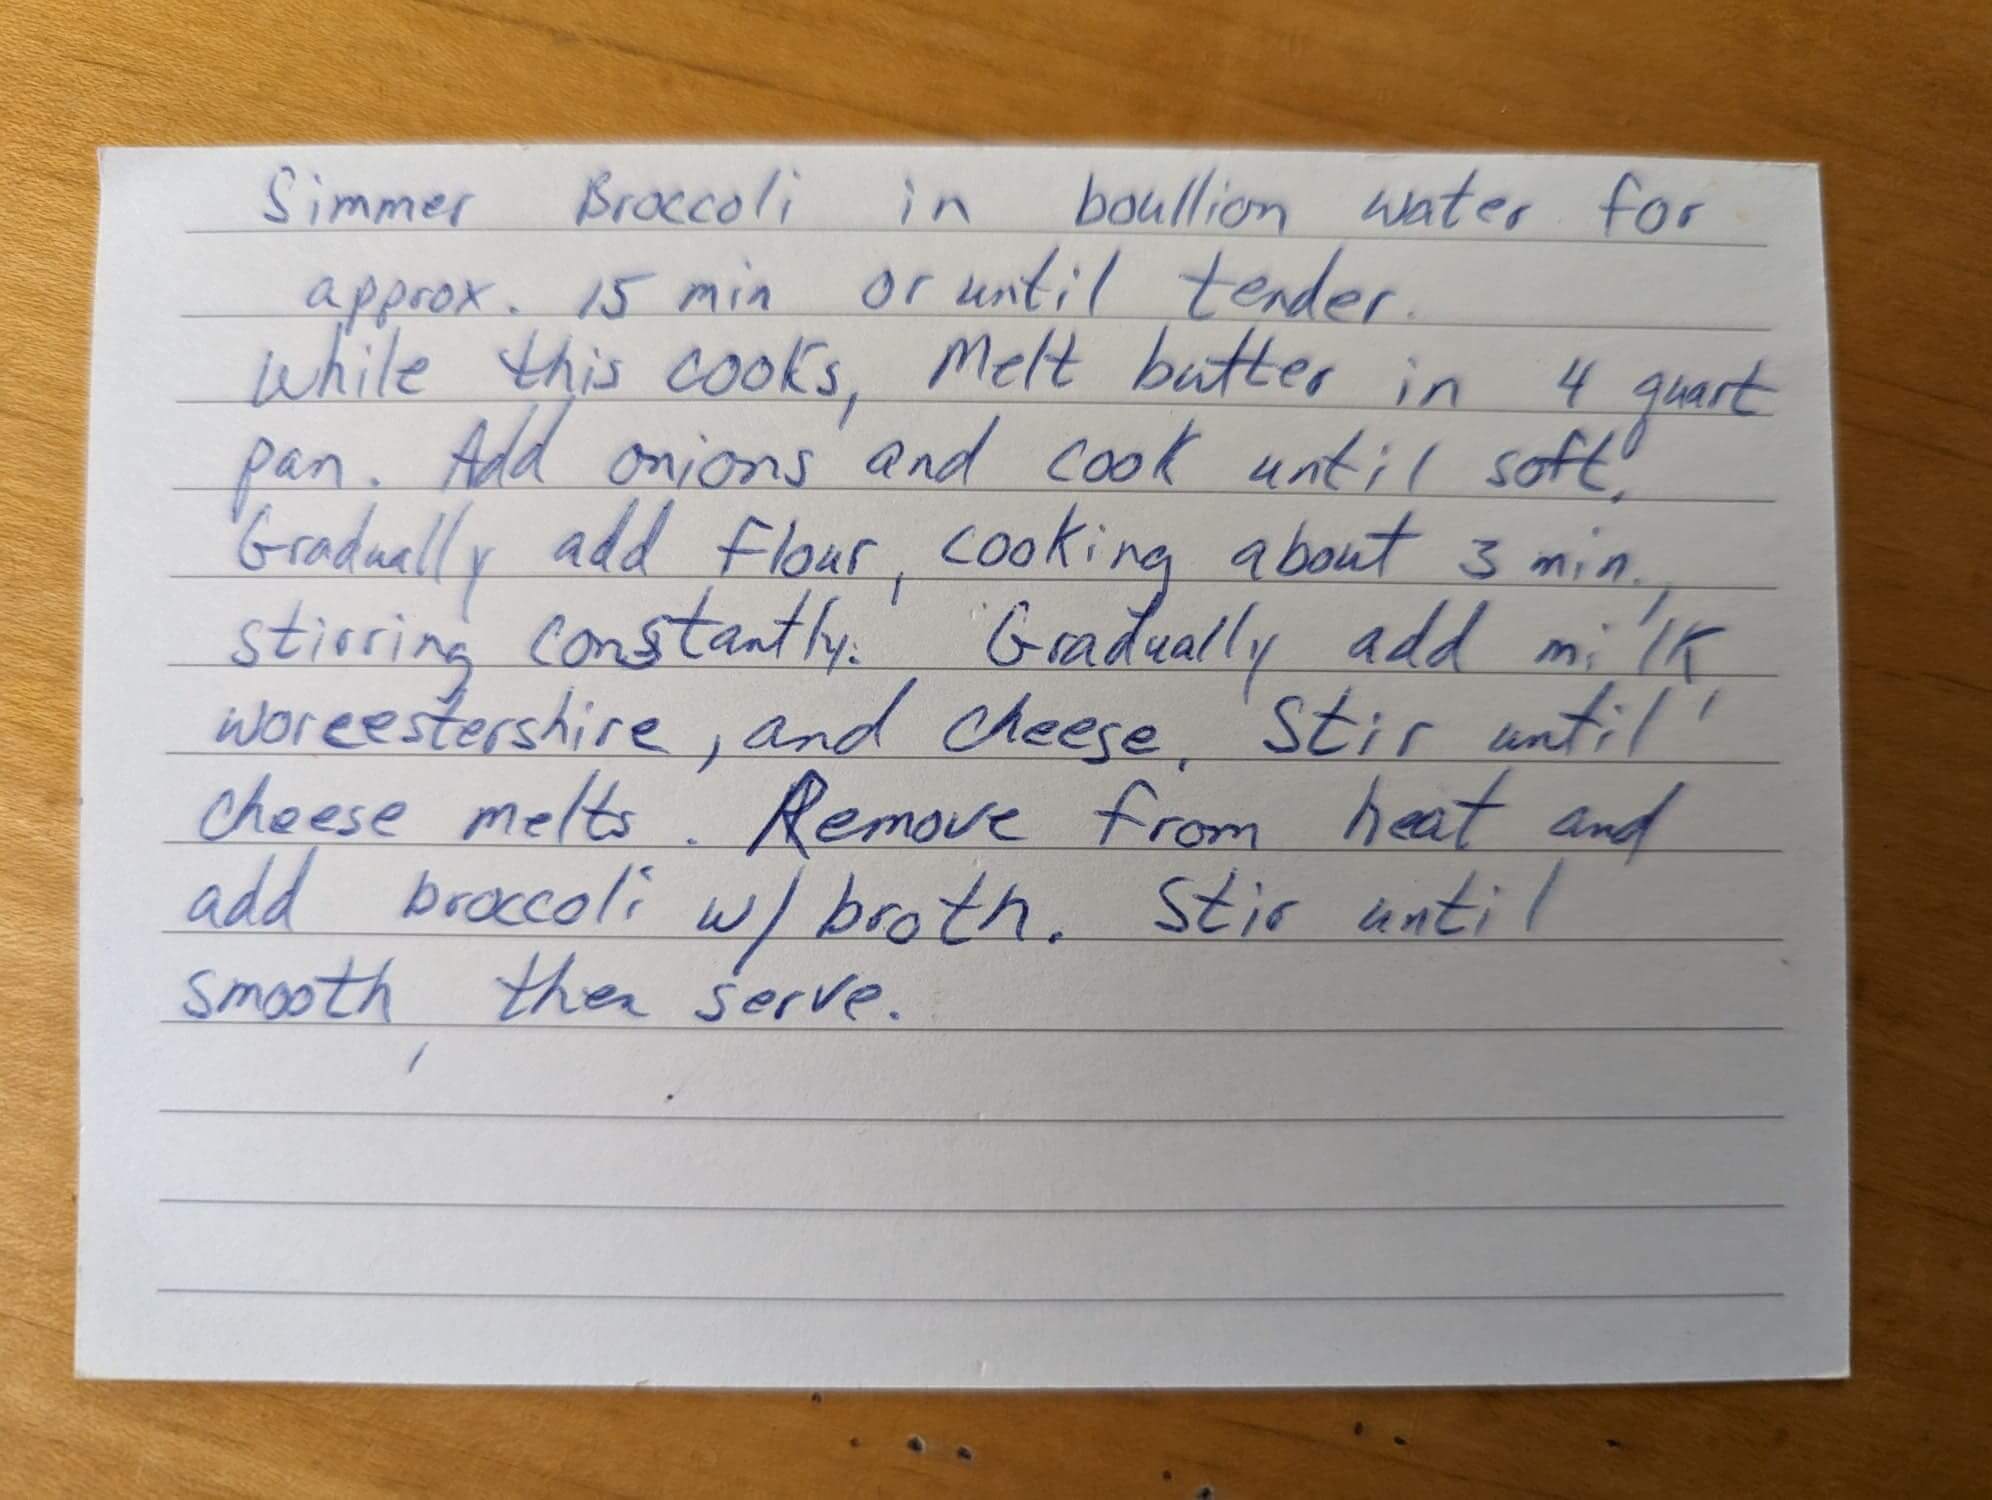 Simmer Broccoli in boullion water for
approx. 15 min or until tender.
While this cooks, Melt butter in 4 quart
pan. Add onions and cook until soft.
Gradually add flour, cooking about 3 min.,
stirring constantly. Gradually add milk,
worcestershire, and cheese. Stir until
cheese melts. Remove from heat and
add broccoli w/ broth. Stir until
smooth, then serve.